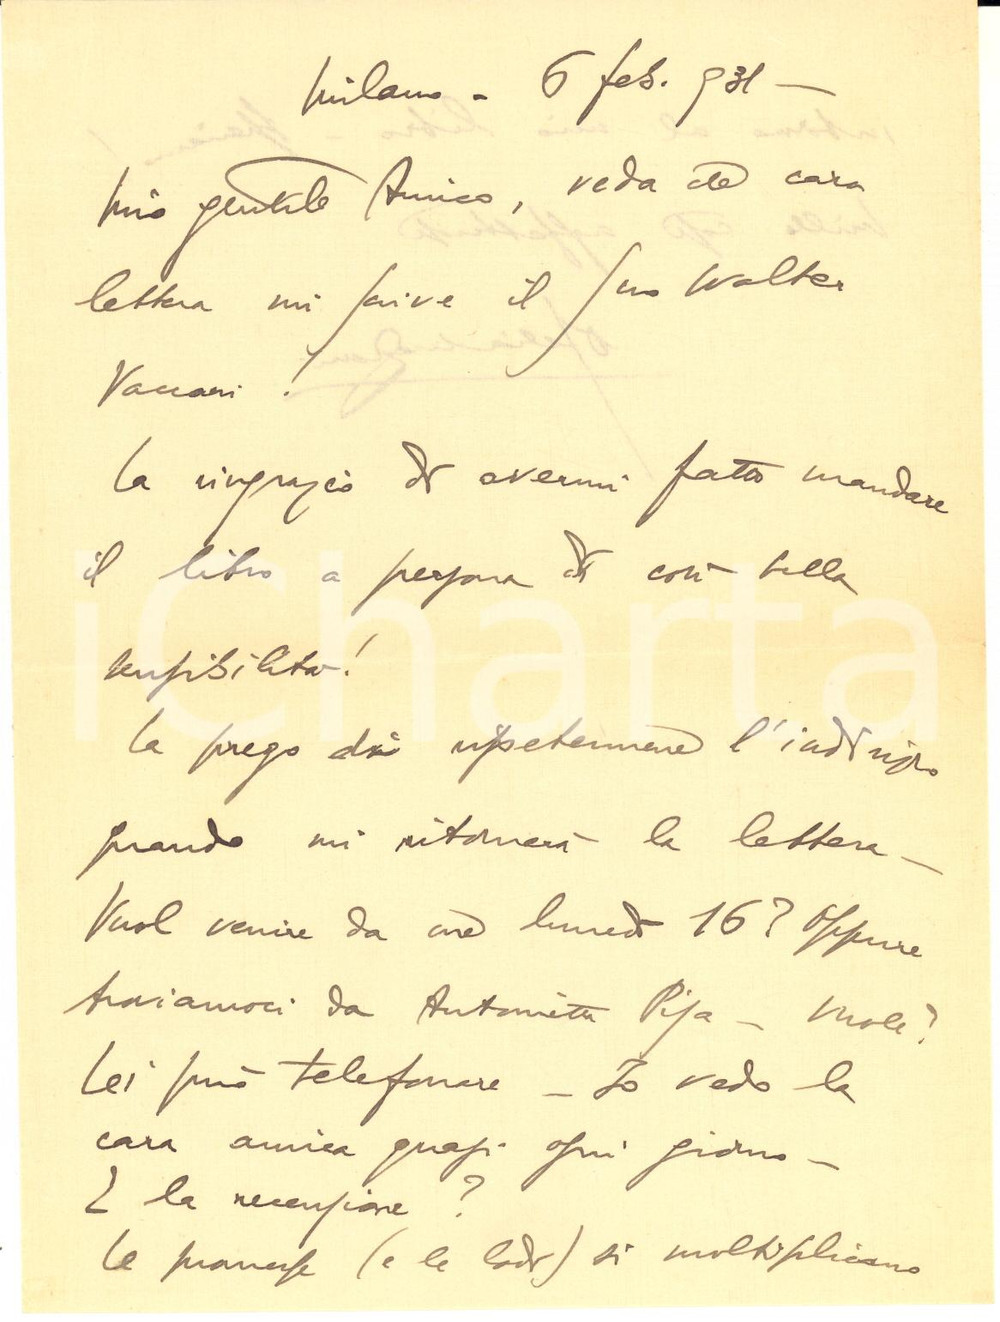 Milano - 6 feb. 931 -
Mio gentile Amico, veda che cara
lettera mi scrive il Suo Walter
Vaccari!
La ringrazio di avermi fatto mandare
il libro a persona di così bella
sensibilità!
La prego di ripetermene l'indirizzo
quando mi ritornerà la lettera -
Vuol venire da me lunedì 16? Oppure
troviamoci da Antonietta Pisa - Vuole?
Lei può telefonare - Io vedo la
cara amica quasi ogni giorno -
E la recensione?
Le promesse (e le lodi) si moltiplicano
iCharta